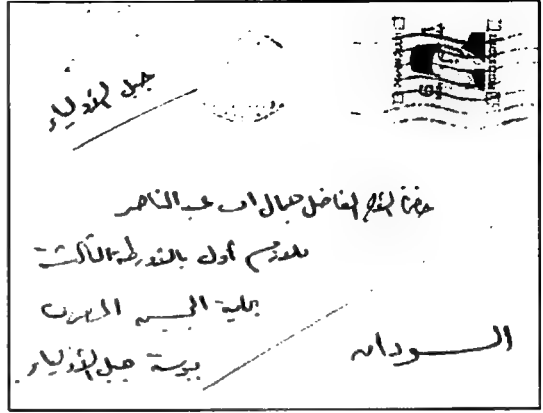 جبل الأولياء
حضرة الأخ الفاضل جمال اف عبد الناصر
ملازم أول بالأورطة الثالثة
بكتيبة الجيش المصرى
بوستة جبل الأولياء
السودان